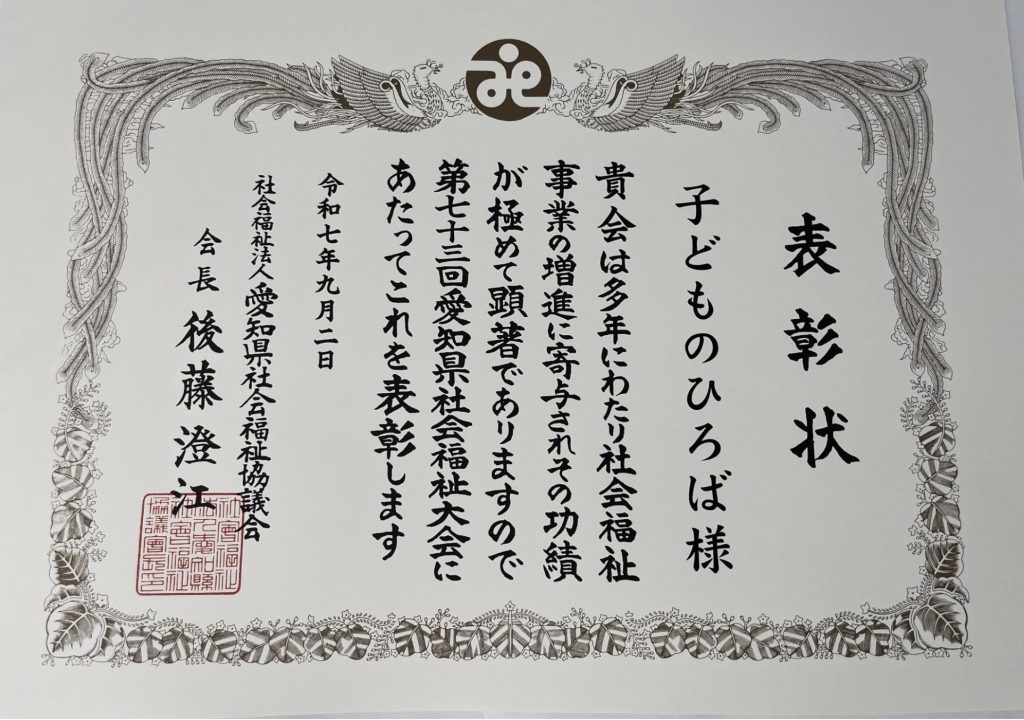 表彰状
子どものひろば様
貴会は多年にわたり社会福祉
事業の増進に寄与されその功績
が極めて顕著でありますので
第七十三回愛知県社会福祉大会に
あたってこれを表彰します
令和七年九月二日
社会福祉法人愛知県社会福祉協議会
会長 後藤澄江